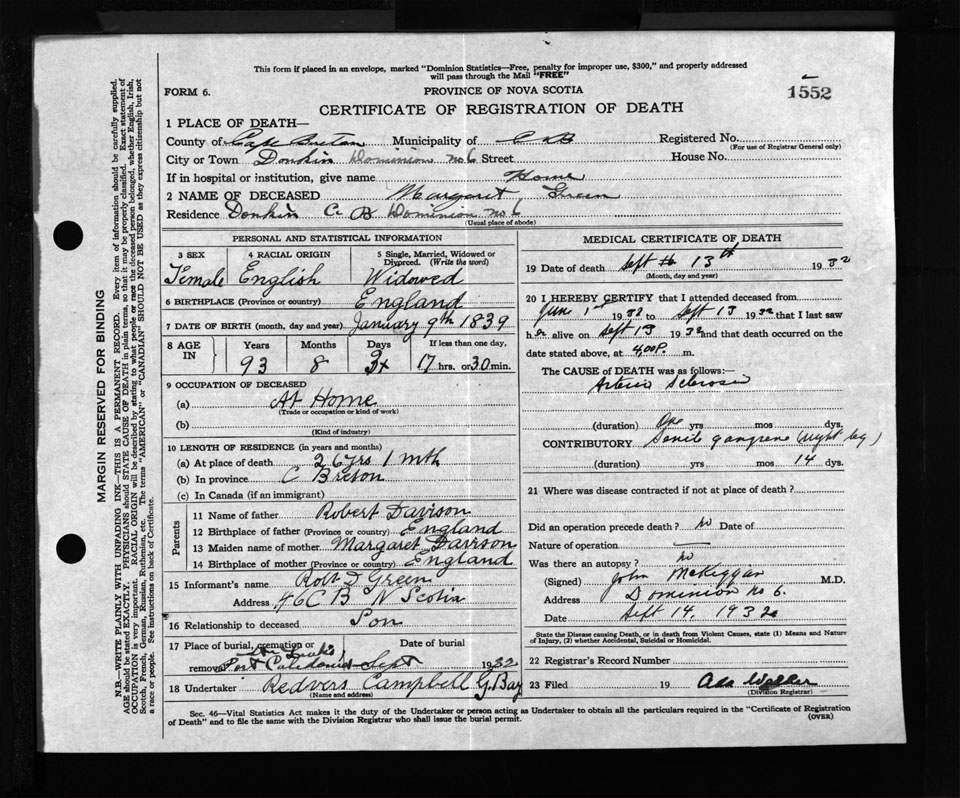 This form if placed in an envelope, marked "Dominion Statistics—Free, penalty for improper use, $300," and properly addressed
will pass through the Mail "FREE"
FORM 6.
PROVINCE OF NOVA SCOTIA
1552
CERTIFICATE OF REGISTRATION OF DEATH
1 PLACE OF DEATH—
County of Cape Breton Municipality of C B Registered No.
(For use of Registrar General only)
City or Town Donkin Dominion no 6 Street House No.
If in hospital or institution, give name Home
2 NAME OF DECEASED Margaret Green
Residence Donkin C B Dominion no 6
(Usual place of abode)
PERSONAL AND STATISTICAL INFORMATION
3 SEX 4 RACIAL ORIGIN 5 Single, Married, Widowed or Divorced. (Write the word)
Female English Widowed
6 BIRTHPLACE (Province or country) England
7 DATE OF BIRTH (month, day and year) January 9th 1839
8 AGE IN Years Months Days If less than one day,
93 8 17 hrs. or 30 min.
9 OCCUPATION OF DECEASED
(a) At Home
(Trade or occupation or kind of work)
(b)
(Kind of industry)
10 LENGTH OF RESIDENCE (in years and months)
(a) At place of death 26 yrs 1 mth
(b) In province C Breton
(c) In Canada (if an immigrant)
Parents
11 Name of father Robert Davison
12 Birthplace of father (Province or country) England
13 Maiden name of mother Margaret Davison
14 Birthplace of mother (Province or country) England
15 Informant's name Robt D Green
Address 46 C B N Scotia
16 Relationship to deceased Son
17 Place of burial, cremation or Date of burial
removal Port Caledonia Sept 1932
18 Undertaker Redvers Campbell G. Bay
(Name and address)
MEDICAL CERTIFICATE OF DEATH
19 Date of death Sept 13th 1932
(Month, day and year)
20 I HEREBY CERTIFY that I attended deceased from
June 1st 1932 to Sept 13 1932 that I last saw
her alive on Sept 13 1932 and that death occurred on
date stated above, at 4.00 P. m.
The CAUSE of DEATH was as follows:—
Arterio Sclerosis
(duration) One yrs mos dys.
CONTRIBUTORY Senile gangrene (right leg)
(duration) yrs mos 14 dys.
21 Where was disease contracted if not at place of death?
Did an operation precede death? no Date of
Nature of operation —
Was there an autopsy? no
(Signed) John McKeggan M.D.
Address Dominion no 6.
Date Sept 14, 1932
State the Disease causing Death, or in death from Violent Causes, state (1) Means and Nature
of Injury, (2) whether Accidental, Suicidal or Homicidal.
22 Registrar's Record Number
23 Filed 19 Ada Walker
(Division Registrar)
Sec. 46—Vital Statistics Act makes it the duty of the Undertaker or person acting as Undertaker to obtain all the particulars required in the "Certificate of Registration
of Death" and to file the same with the Division Registrar who shall issue the burial permit.
(OVER)
MARGIN RESERVED FOR BINDING
N.B.—WRITE PLAINLY WITH UNFADING INK—THIS IS A PERMANENT RECORD. Every item of information should be carefully supplied.
AGE should be stated EXACTLY. PHYSICIANS should STATE CAUSE OF DEATH in plain terms, so that it may be properly classified. Exact statement of
OCCUPATION is very important. RACIAL ORIGIN will be described by stating to what people or race the deceased person belonged, whether English, Irish,
Scotch, French, German, Russian, Ruthenian, etc. The terms "AMERICAN" or "CANADIAN" SHOULD NOT BE USED as they express citizenship but not
a race or people. See instructions on back of Certificate.